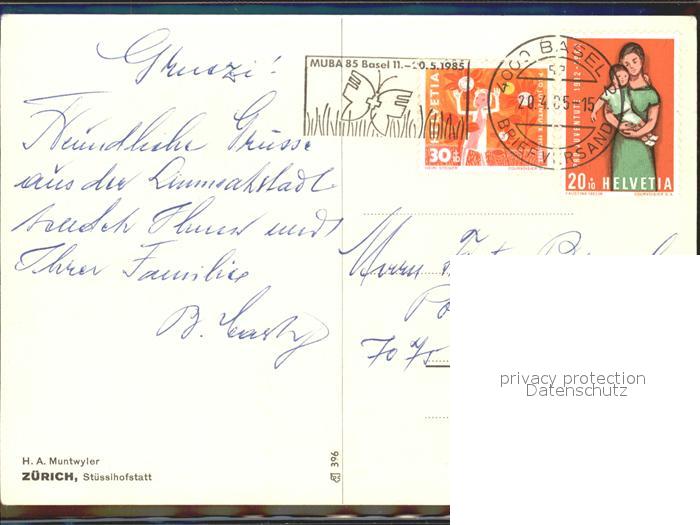 Gruezi!
MUBA 85 Basel 11.–20.5.1985
4000 BASEL 2
20.4.85-15
BRIEFVERSAND
HELVETIA
30+10
PRO JUVENTUTE 1912
20+10 HELVETIA
COURVOISIER S.A.
Freundliche Grüsse
aus der Limmatstadt
sendet Ihnen und
Ihrer Familie
B.
Herrn
privacy protection
Datenschutz
H. A. Muntwyler
ZÜRICH, Stüssihofstatt
396